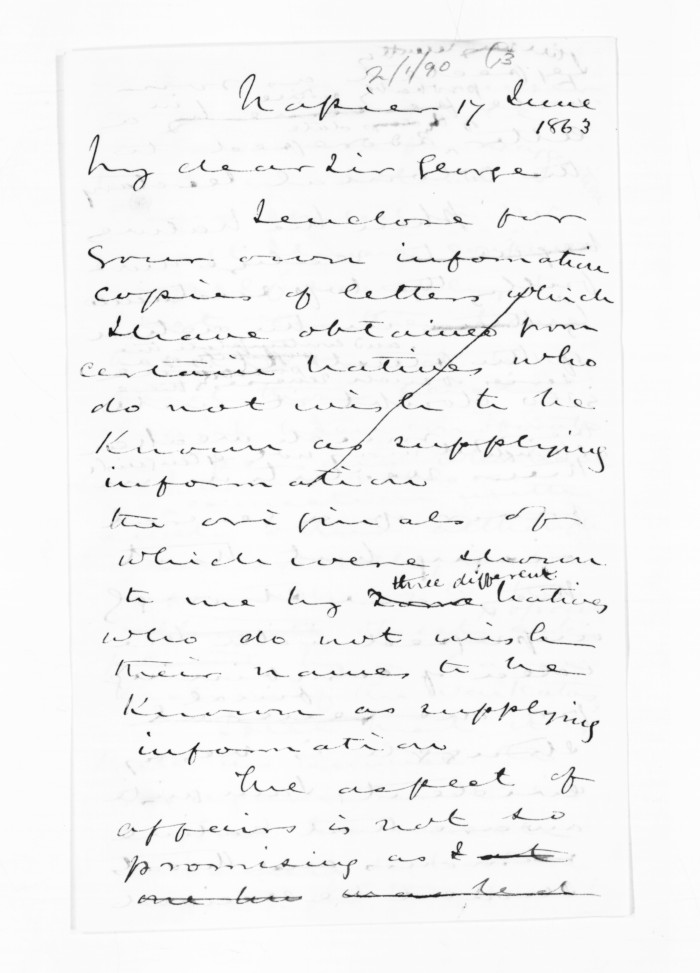 2/1/90
13
Napier 17 June
1863
My dear Sir George
I enclose for
your own information
copies of letters which
I have obtained from
certain Natives who
do not wish to be
Known as supplying
information
the originals of
which were shown
three different
to me by some Natives
who do not wish
their names to be
Known as supplying
information
The aspect of
affairs is not so
promising as I at
one